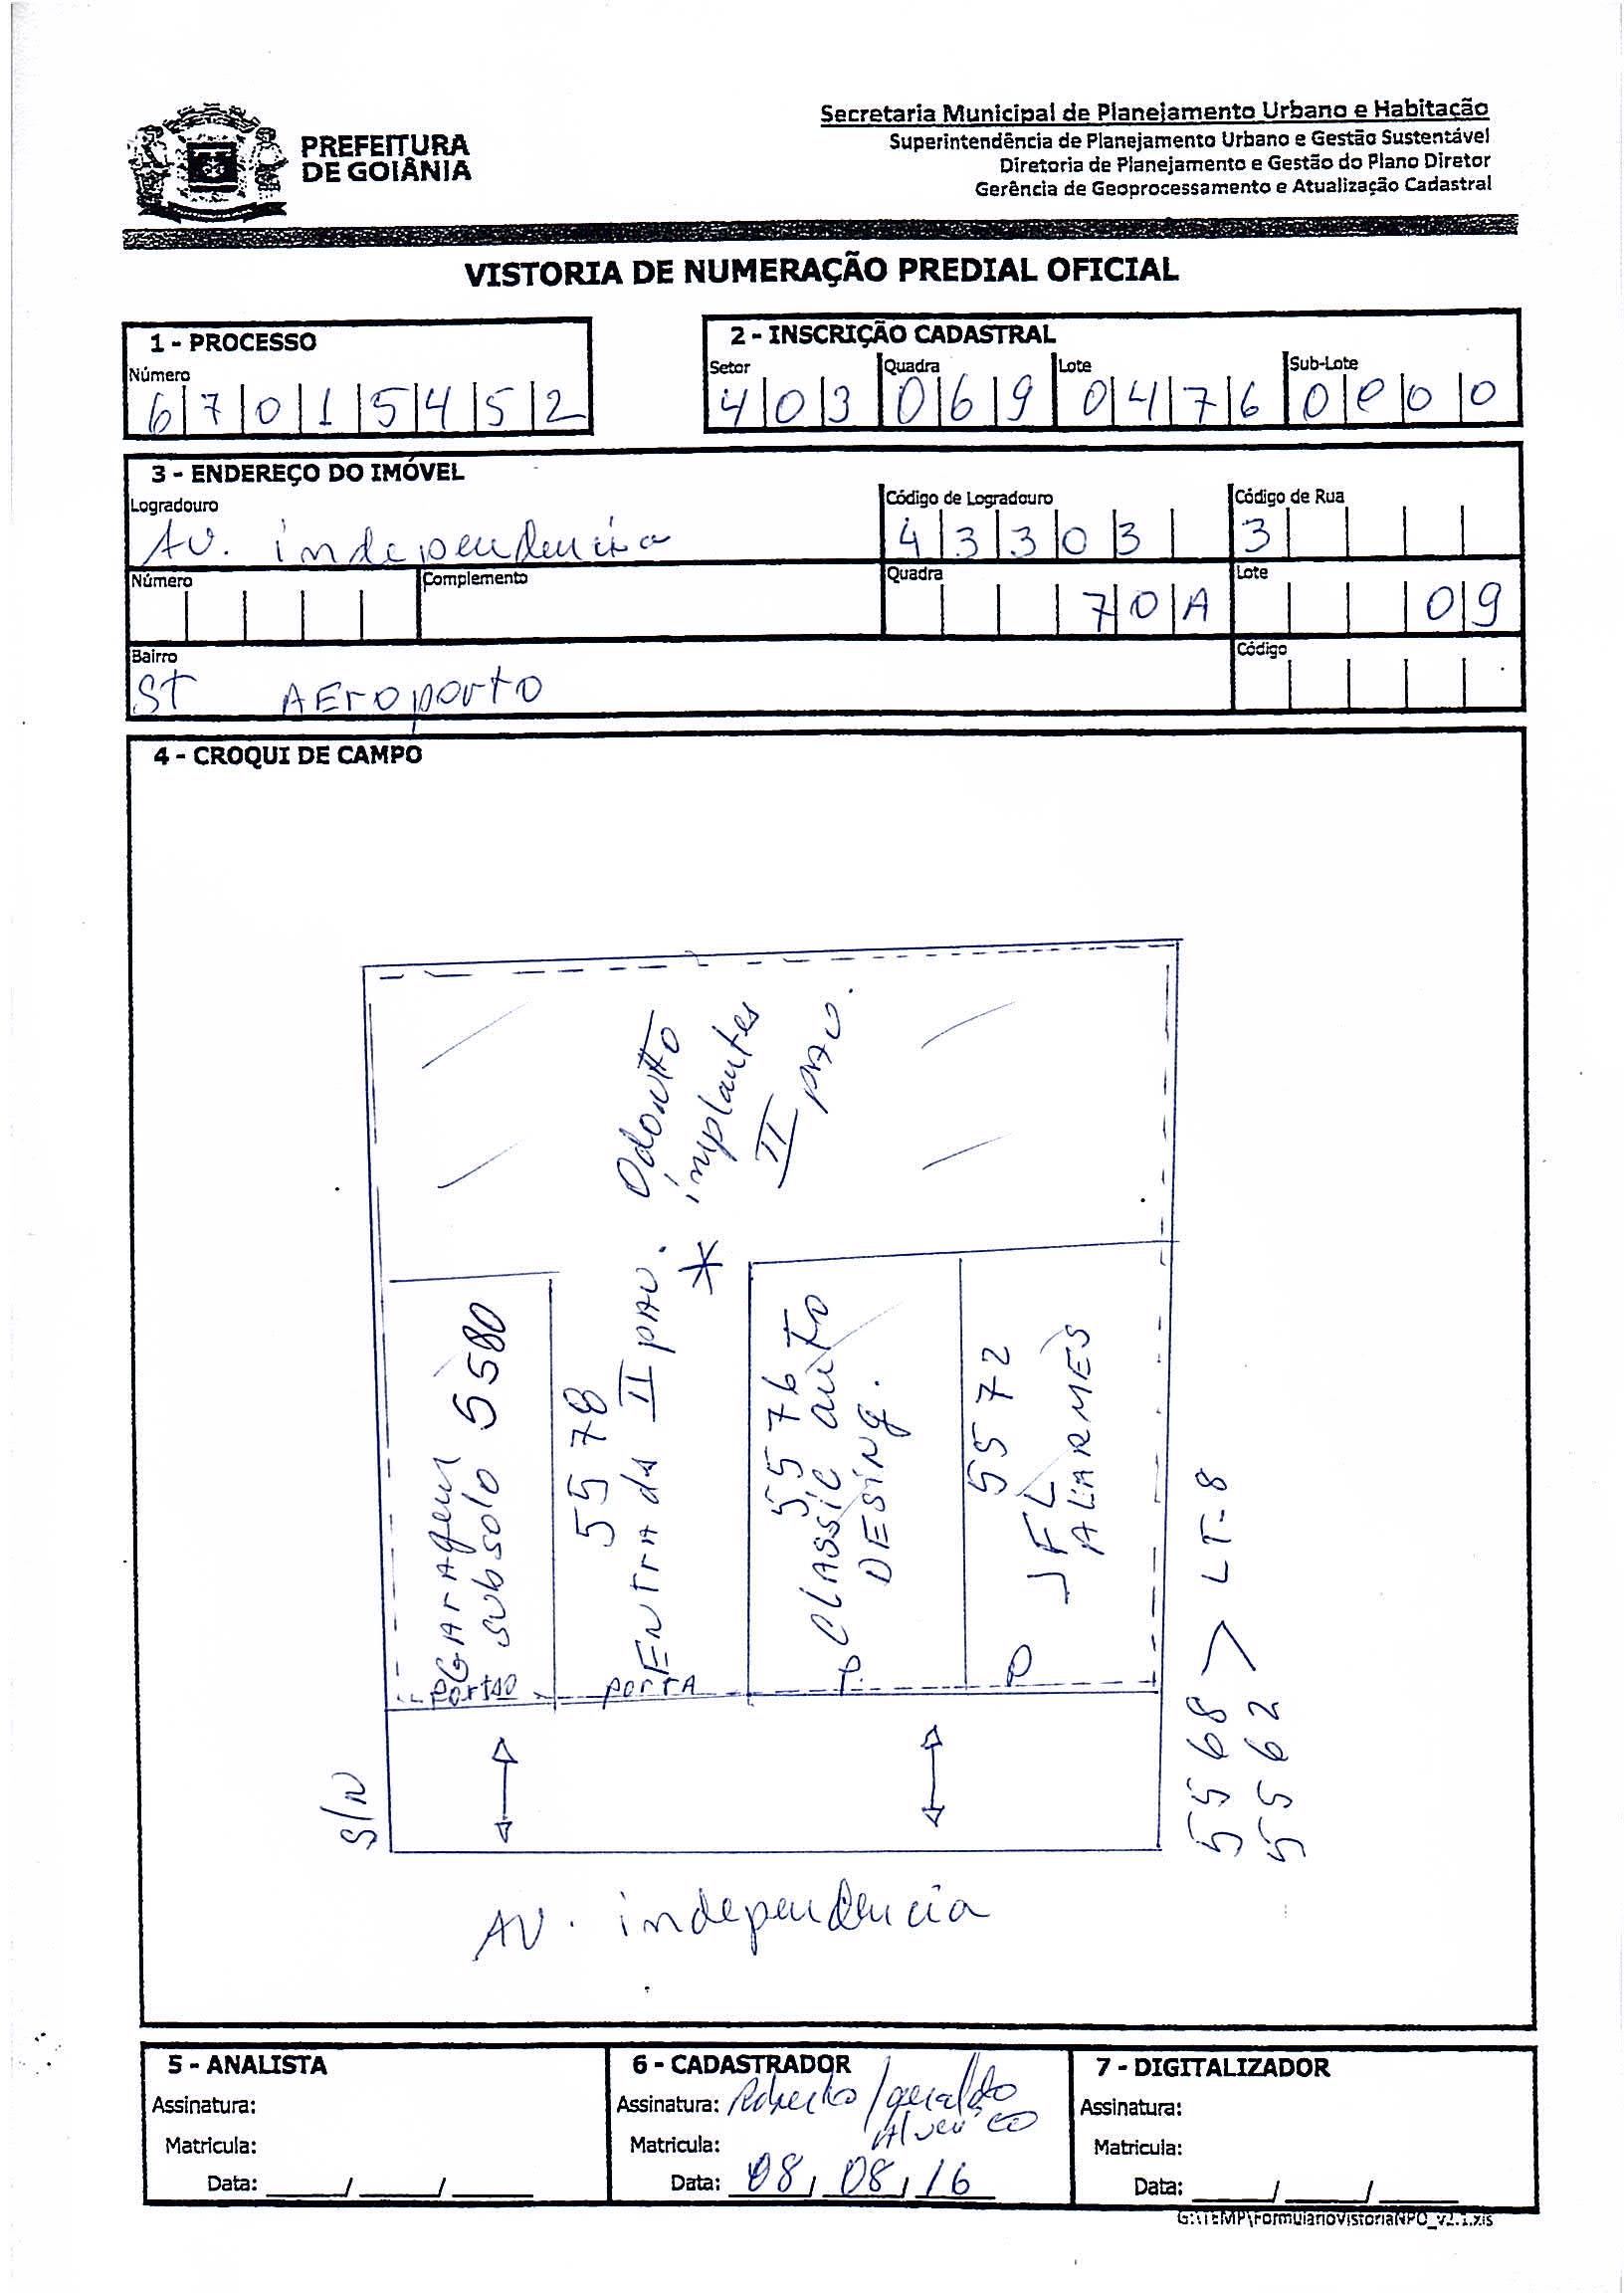 PREFEITURA
DE GOIÂNIA
Secretaria Municipal de Planejamento Urbano e Habitação
Superintendência de Planejamento Urbano e Gestão Sustentável
Diretoria de Planejamento e Gestão do Plano Diretor
Gerência de Geoprocessamento e Atualização Cadastral
VISTORIA DE NUMERAÇÃO PREDIAL OFICIAL
1 - PROCESSO
Número
6 7 0 1 5 4 5 2
2 - INSCRIÇÃO CADASTRAL
Setor Quadra Lote Sub-Lote
4 0 3 0 6 9 0 4 7 6 0 0 0 0
3 - ENDEREÇO DO IMÓVEL
Logradouro Código de Logradouro Código de Rua
AV. independencia 4 3 3 0 3 3
Número Complemento Quadra Lote
7 0 A 0 9
Bairro Código
ST AEroporto
4 - CROQUI DE CAMPO
Odonto
implantes
II PAV.
*
GArAgem
subsolo 5580
portão
5578
EntrA da II PAV.
portA
5576
CLASSIC AUTO
DESING.
P
5572
JFL
ALARMES
P
S/N
5568 > LT-8
5562
AV. independencia
5 - ANALISTA
Assinatura:
Matricula:
Data: ____/____/____
6 - CADASTRADOR
Assinatura: Roberto / geraldo
Matricula:
Data: 08/08/16
7 - DIGITALIZADOR
Assinatura:
Matricula:
Data: ____/____/____
G:\TEMP\FormularioVistoriaNPO_v2.1.xls